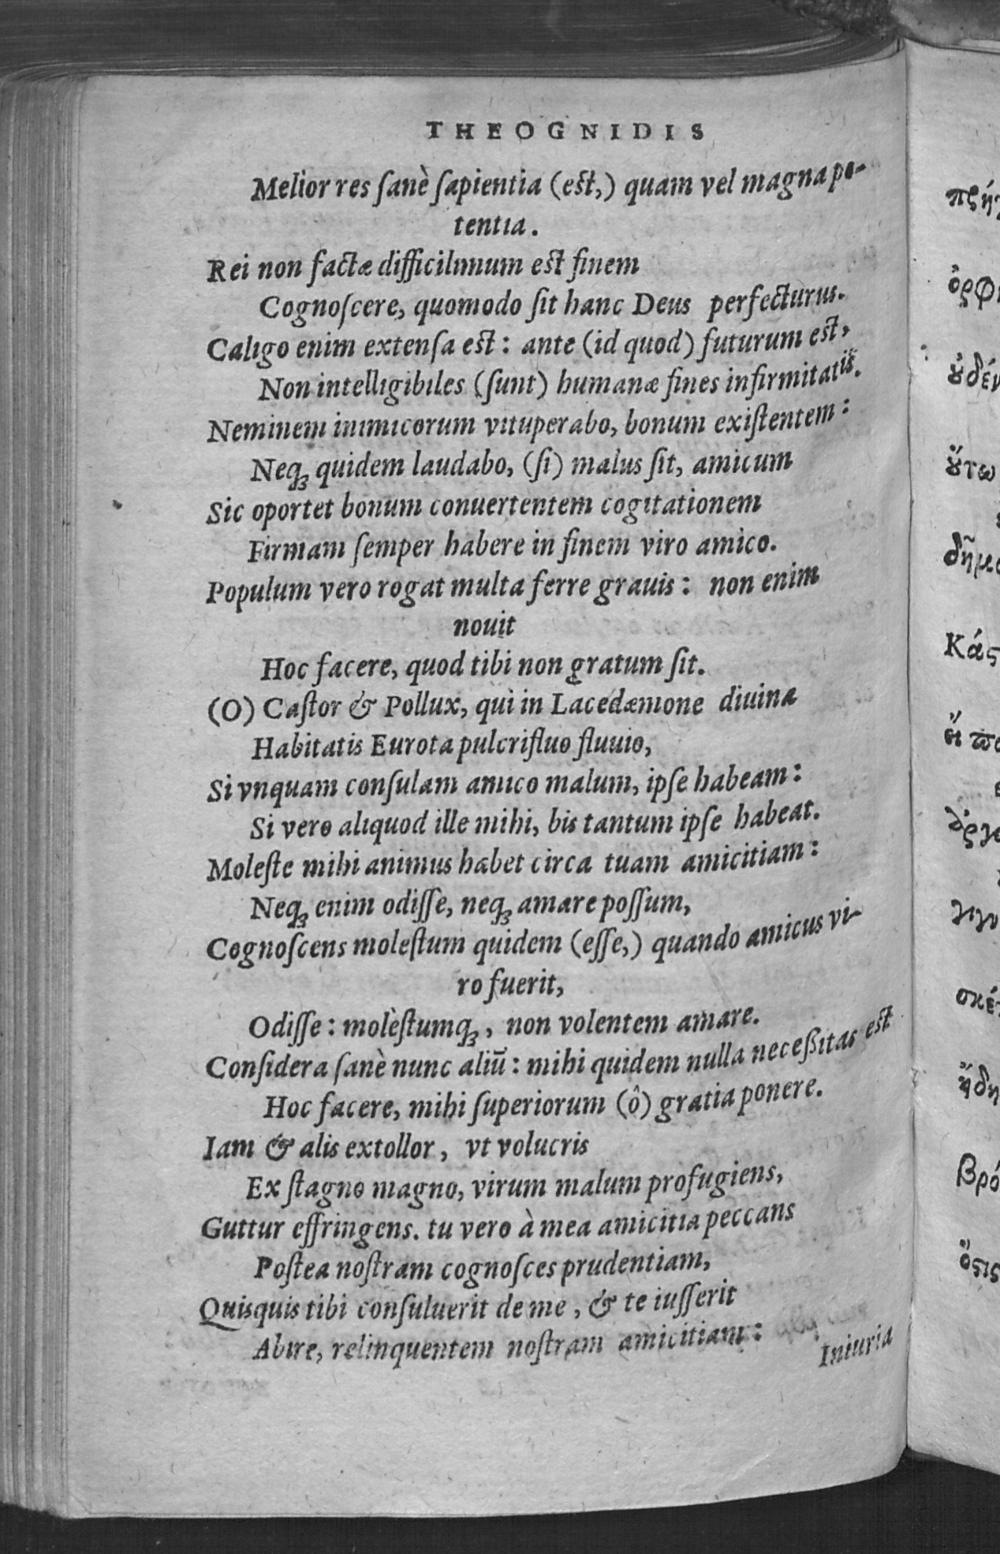 THEOGNIDIS
Melior res ſanè ſapientia (eſt,) quam vel magna po-
tentia.
Rei non factæ difficilimum eſt finem
Cognoſcere, quomodo ſit hanc Deus perfecturus.
Caligo enim extenſa eſt: ante (id quod) futurum eſt,
Non intelligibiles (ſunt) humanæ fines infirmitatis.
Neminem inimicorum vituperabo, bonum exiſtentem:
Neqꝫ quidem laudabo, (ſi) malus ſit, amicum
Sic oportet bonum conuertentem cogitationem
Firmam ſemper habere in finem viro amico.
Populum vero rogat multa ferre grauis: non enim
nouit
Hoc facere, quod tibi non gratum ſit.
(O) Caſtor & Pollux, qui in Lacedæmone diuina
Habitatis Eurota pulcrifluo fluuio,
Si vnquam conſulam amico malum, ipſe habeam:
Si vero aliquod ille mihi, bis tantum ipſe habeat.
Moleſte mihi animus habet circa tuam amicitiam:
Neqꝫ enim odiſſe, neqꝫ amare poſſum,
Cognoſcens moleſtum quidem (eſſe,) quando amicus vi-
ro fuerit,
Odiſſe: molèſtumqꝫ, non volentem amare.
Conſidera ſanè nunc aliū: mihi quidem nulla neceßitas eſt
Hoc facere, mihi ſuperiorum (ô) gratia ponere.
Iam & alis extollor, vt volucris
Ex ſtagno magno, virum malum profugiens,
Guttur effringens. tu vero à mea amicitia peccans
Poſtea noſtram cognoſces prudentiam,
Quisquis tibi conſuluerit de me, & te iuſſerit
Abire, relinquentem noſtram amicitiam:
Iniuria
ὀρφ
ȣ̓δέν
ȣ̔́τω
δῆμο
Κάς
σκέ
βρό
ὅςις